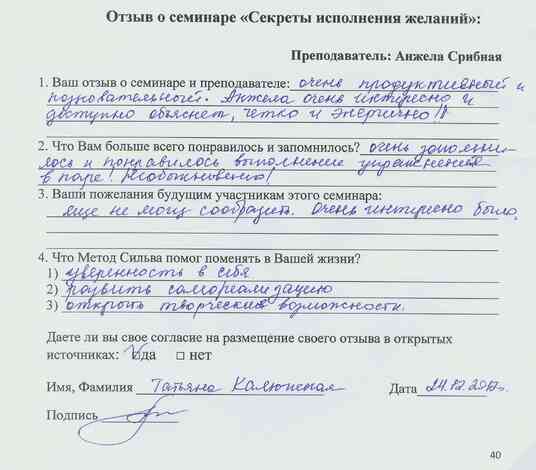 Отзыв о семинаре «Секреты исполнения желаний»:
Преподаватель: Анжела Срибная
1. Ваш отзыв о семинаре и преподавателе: очень продуктивный и
познавательный. Анжела очень интересно и
доступно обьяснет, четко и энергично!!
2. Что Вам больше всего понравилось и запомнилось? очень запомни-
лось и понравилось выполнение упражнения
в паре! Необыкновенно!
3. Ваши пожелания будущим участникам этого семинара:
еще не могу сообразить. Очень интересно было.
4. Что Метод Сильва помог поменять в Вашей жизни?
1) уверенность в себя
2) развить самореализацию
3) открыть творческие возможности.
Даете ли вы свое согласие на размещение своего отзыва в открытых
источниках: да нет
Имя, Фамилия Татьяна Дата 24.12.2017г.
Подпись
40